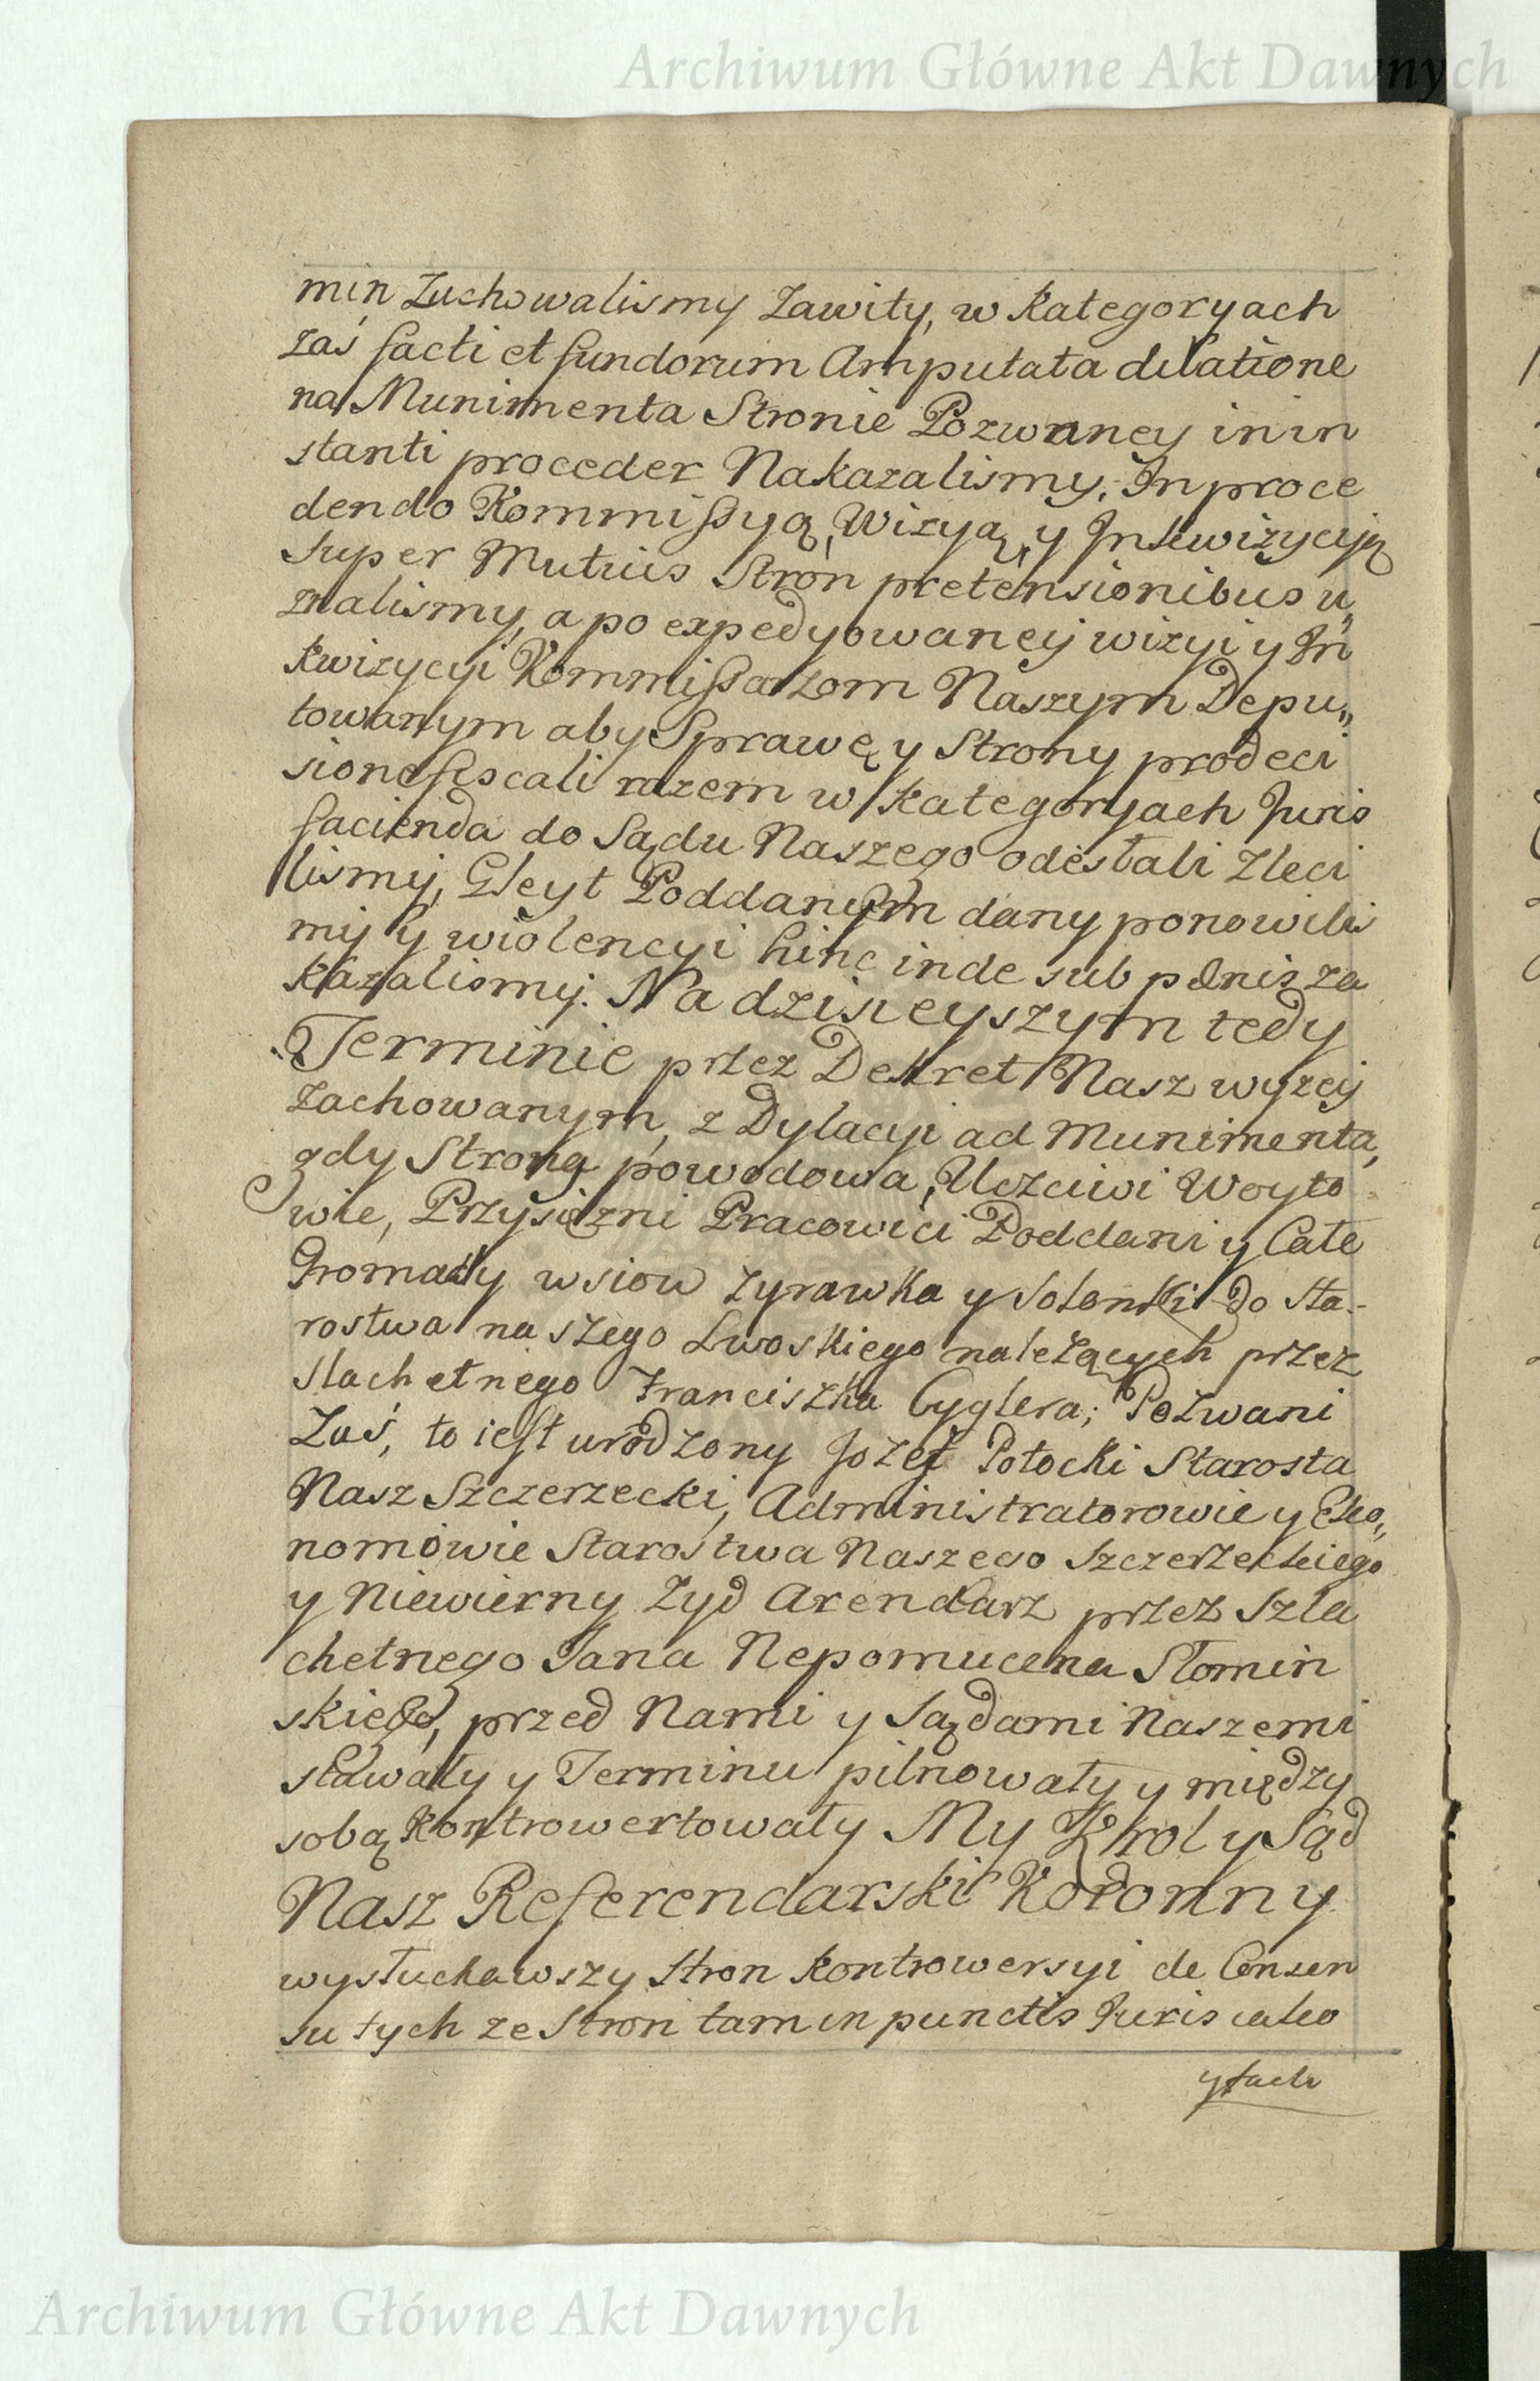 Archiwum Główne Akt Dawnych
min zachowalismy zawity, w kategoryach
zaś facti et fundorum amputata dilatione
na Munimenta Stronie Pozwaney in in
stanti proceder Nakazalismy. In proce
dendo Kommissyą, Wizyą, y Inkwizycyją
super Mutuis Stron pretensionibus u„
znalismy, a po expedyowaney wizyi y In
kwizycyi Kommissarzom Naszym Depu„
towanym aby Sprawę y Strony pro deci
sione fiscali razem w kategoryach Juris
facienda do Sądu Naszego odesłali zleci
lismy, Gleyt Poddanym dany ponowilis
my y wiolencyi hinc inde sub pœnis za
kazalismy. Na dzisieyszym tedy
Terminie przez Dekret Nasz wyżey
zachowanym, z Dylacyi ad Munimenta,
gdy Strona powodowa, Uczciwi Woyto
wie, Przysiężni Pracowici Poddani y Całe
Gromady wsiow Zyrawka y Solonki do Sta-
rostwa naszego Lwoskiego należących przez
Slachetnego Franciszka Cyglera; Pozwani
Zaś, to iest urodzony Jozef Potocki Starosta
Nasz Szczerzecki, Administratorowie y Eko„
nomowie Starostwa Naszego Szczerzeckiego
y Niewierny Zyd Arendarz przez Szla
chetnego Jana Nepomucena Słomin
skiego, przed Nami y Sądami Naszemi
stawały y Terminu pilnowały y między
sobą kontrowertowały My Krol y Sąd
Nasz Referendarski Koronny
wysłuchawszy Stron kontrowersyi de Consen
su tych ze Stron tam in punctis Juris iako
y facti
Archiwum Główne Akt Dawnych